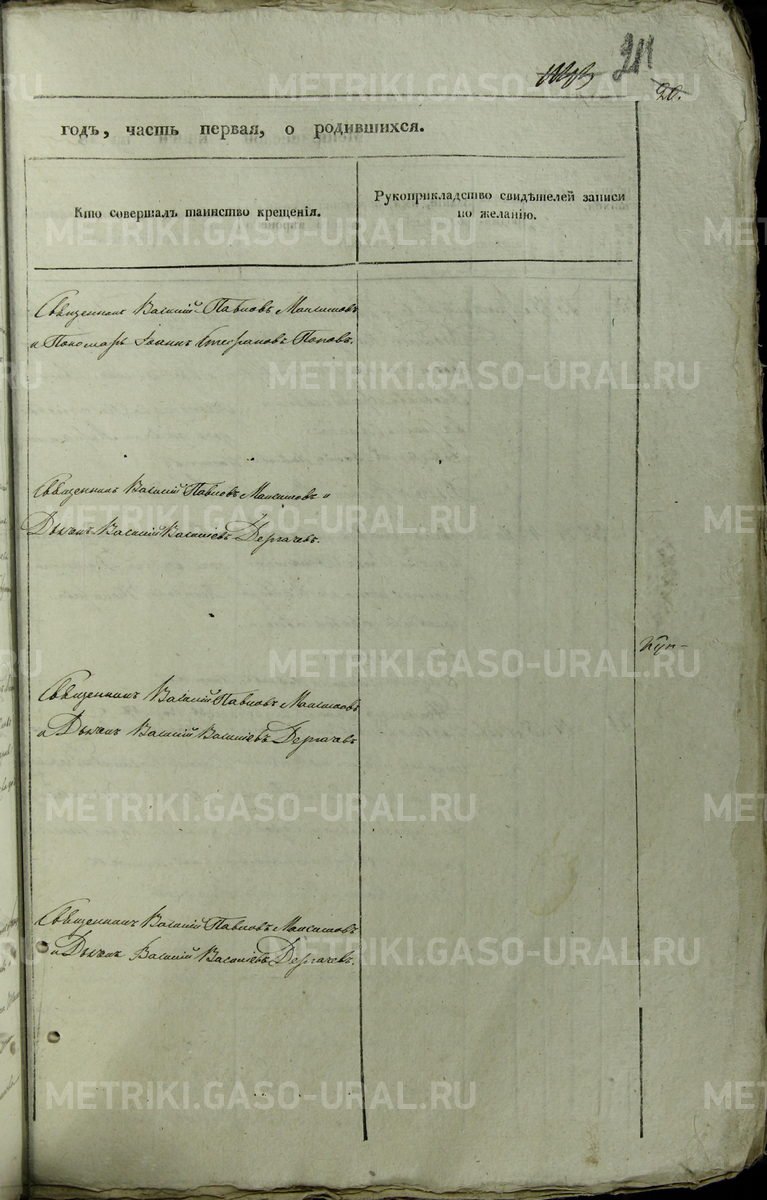 211
20.
годъ, часть первая, о родившихся.
Кто совершалъ таинство крещенія.
Рукоприкладство свидѣтелей записи
по желанію.
Священникъ Василій Павловъ Максимовъ
и Пономарь Іоаннъ Стефановъ Поповъ.
Священникъ Василій Павловъ Максимовъ и
Дьячекъ Василій Василіевъ Дергачевъ.
Куп-
Священникъ Василій Павловъ Максимовъ
и Дьячекъ Василій Василіевъ Дергачевъ
Священникъ Василій Павловъ Максимовъ
и Дьячекъ Василій Василіевъ Дергачевъ.
METRIKI.GASO-URAL.RU